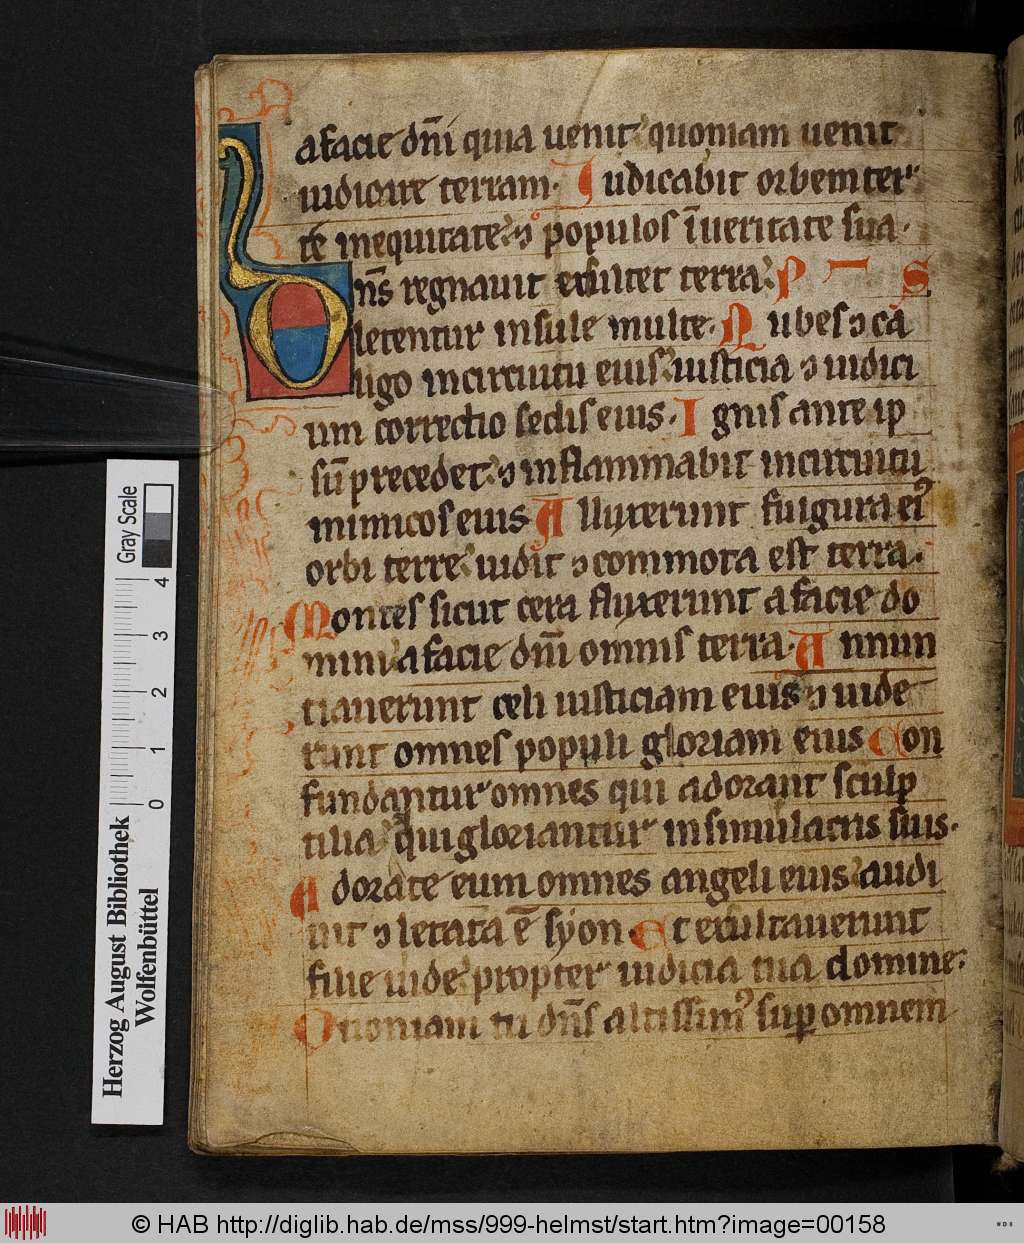 a facie dñi quia uenit quoniam uenit
iudicare terram. Iudicabit orbem ter
re in equitate ⁊ populos ĩ ueritate sua.
Dñs regnauit exultet terra P S
letentur insule multe. Nubes ⁊ cã
ligo in circuitu eius iusticia ⁊ iudici
um correctio sedis eius. Ignis ante ip
sũ precedet ⁊ inflammabit in circuitu
inimicos eius Alluxerunt fulgura ei᾿
orbi terre uidit ⁊ commota est terra.
Montes sicut cera fluxerunt a facie do
mini a facie dñi omnis terra. Annun
tiauerunt celi iusticiam eius ⁊ uide
runt omnes populi gloriam eius Con
fundantur omnes qui adorant sculp
tilia qui gloriantur in simulacris suis.
Adorate eum omnes angeli eius audi
uit ⁊ letata ẽ syon. Et exultauerunt
filie iude propter iudicia tua domine.
Quoniam tu dñs altissim᾿ sup omnem
Gray Scale
4 3 2 1 0
Herzog August Bibliothek
Wolfenbüttel
© HAB http://diglib.hab.de/mss/999-helmst/start.htm?image=00158
WDB